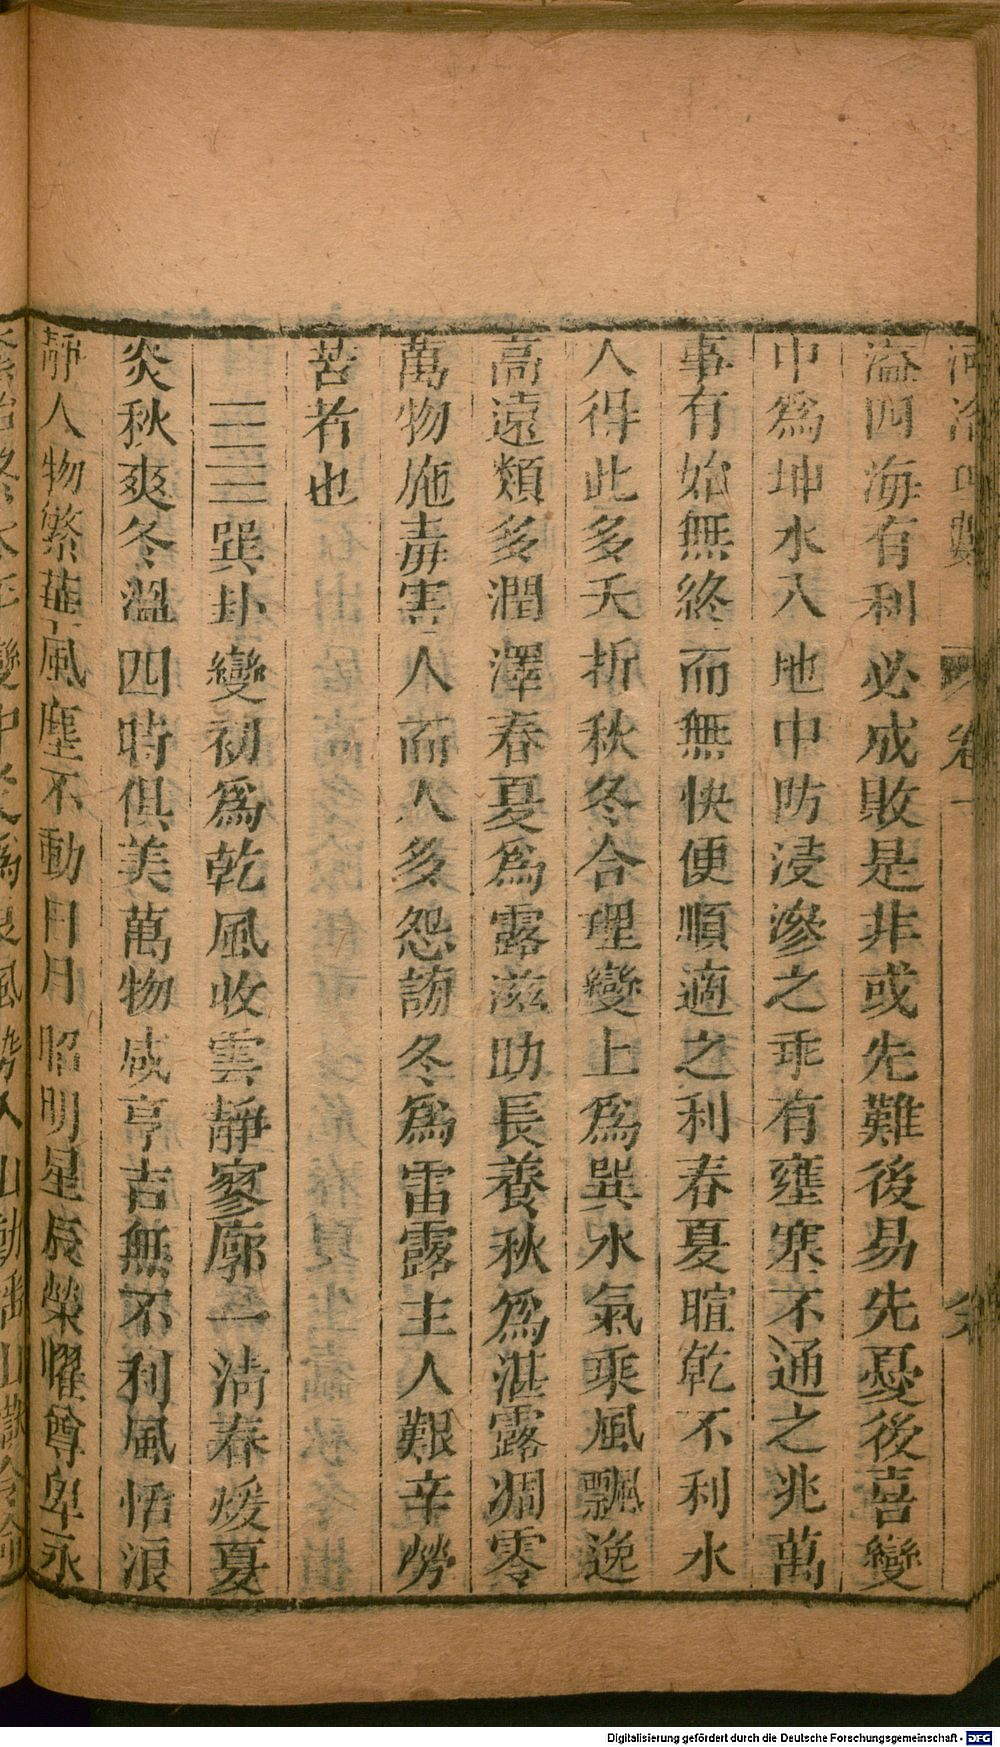 河洛
卷一
溢四海有利必成敗是非或先難後易先憂後喜變
中爲坤水入地中防浸滲之乖有壅塞不通之兆萬
事有始無終而無快便順適之利春夏暄乾不利水
人得此多夭折秋冬合理變上爲巽水氣乘風飄逸
高遠類多潤澤春夏爲露滋助長養秋爲湛露凋零
萬物施毒害人而人多怨謗冬爲雷露主人艱辛勞
苦者也
☴☴巽卦變初爲乾風收雲靜寥廓一淸春煖夏
炎秋爽冬溫四時俱美萬物咸亨吉無不利風恬浪
靜人物繁華風塵不動日月昭明星辰榮耀尊卑永
Digitalisierung gefördert durch die Deutsche Forschungsgemeinschaft - DFG